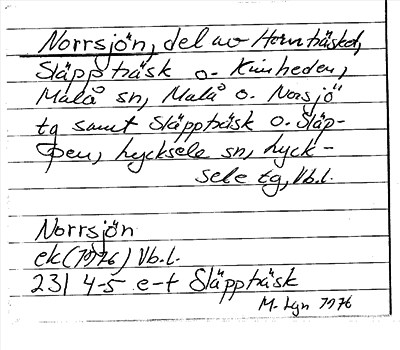 Norrsjön, del av Hornträsket,
Släppträsk o. Kinnheden,
Malå sn, Malå o. Norsjö
tg samt Släppträsk o. Släp-
pen, Lycksele sn, Lyck-
sele tg, Vb.l.
Norrsjön
ek (1976) Vb.l.
231 4-5 e-f Släppträsk
M. Lgn 1976